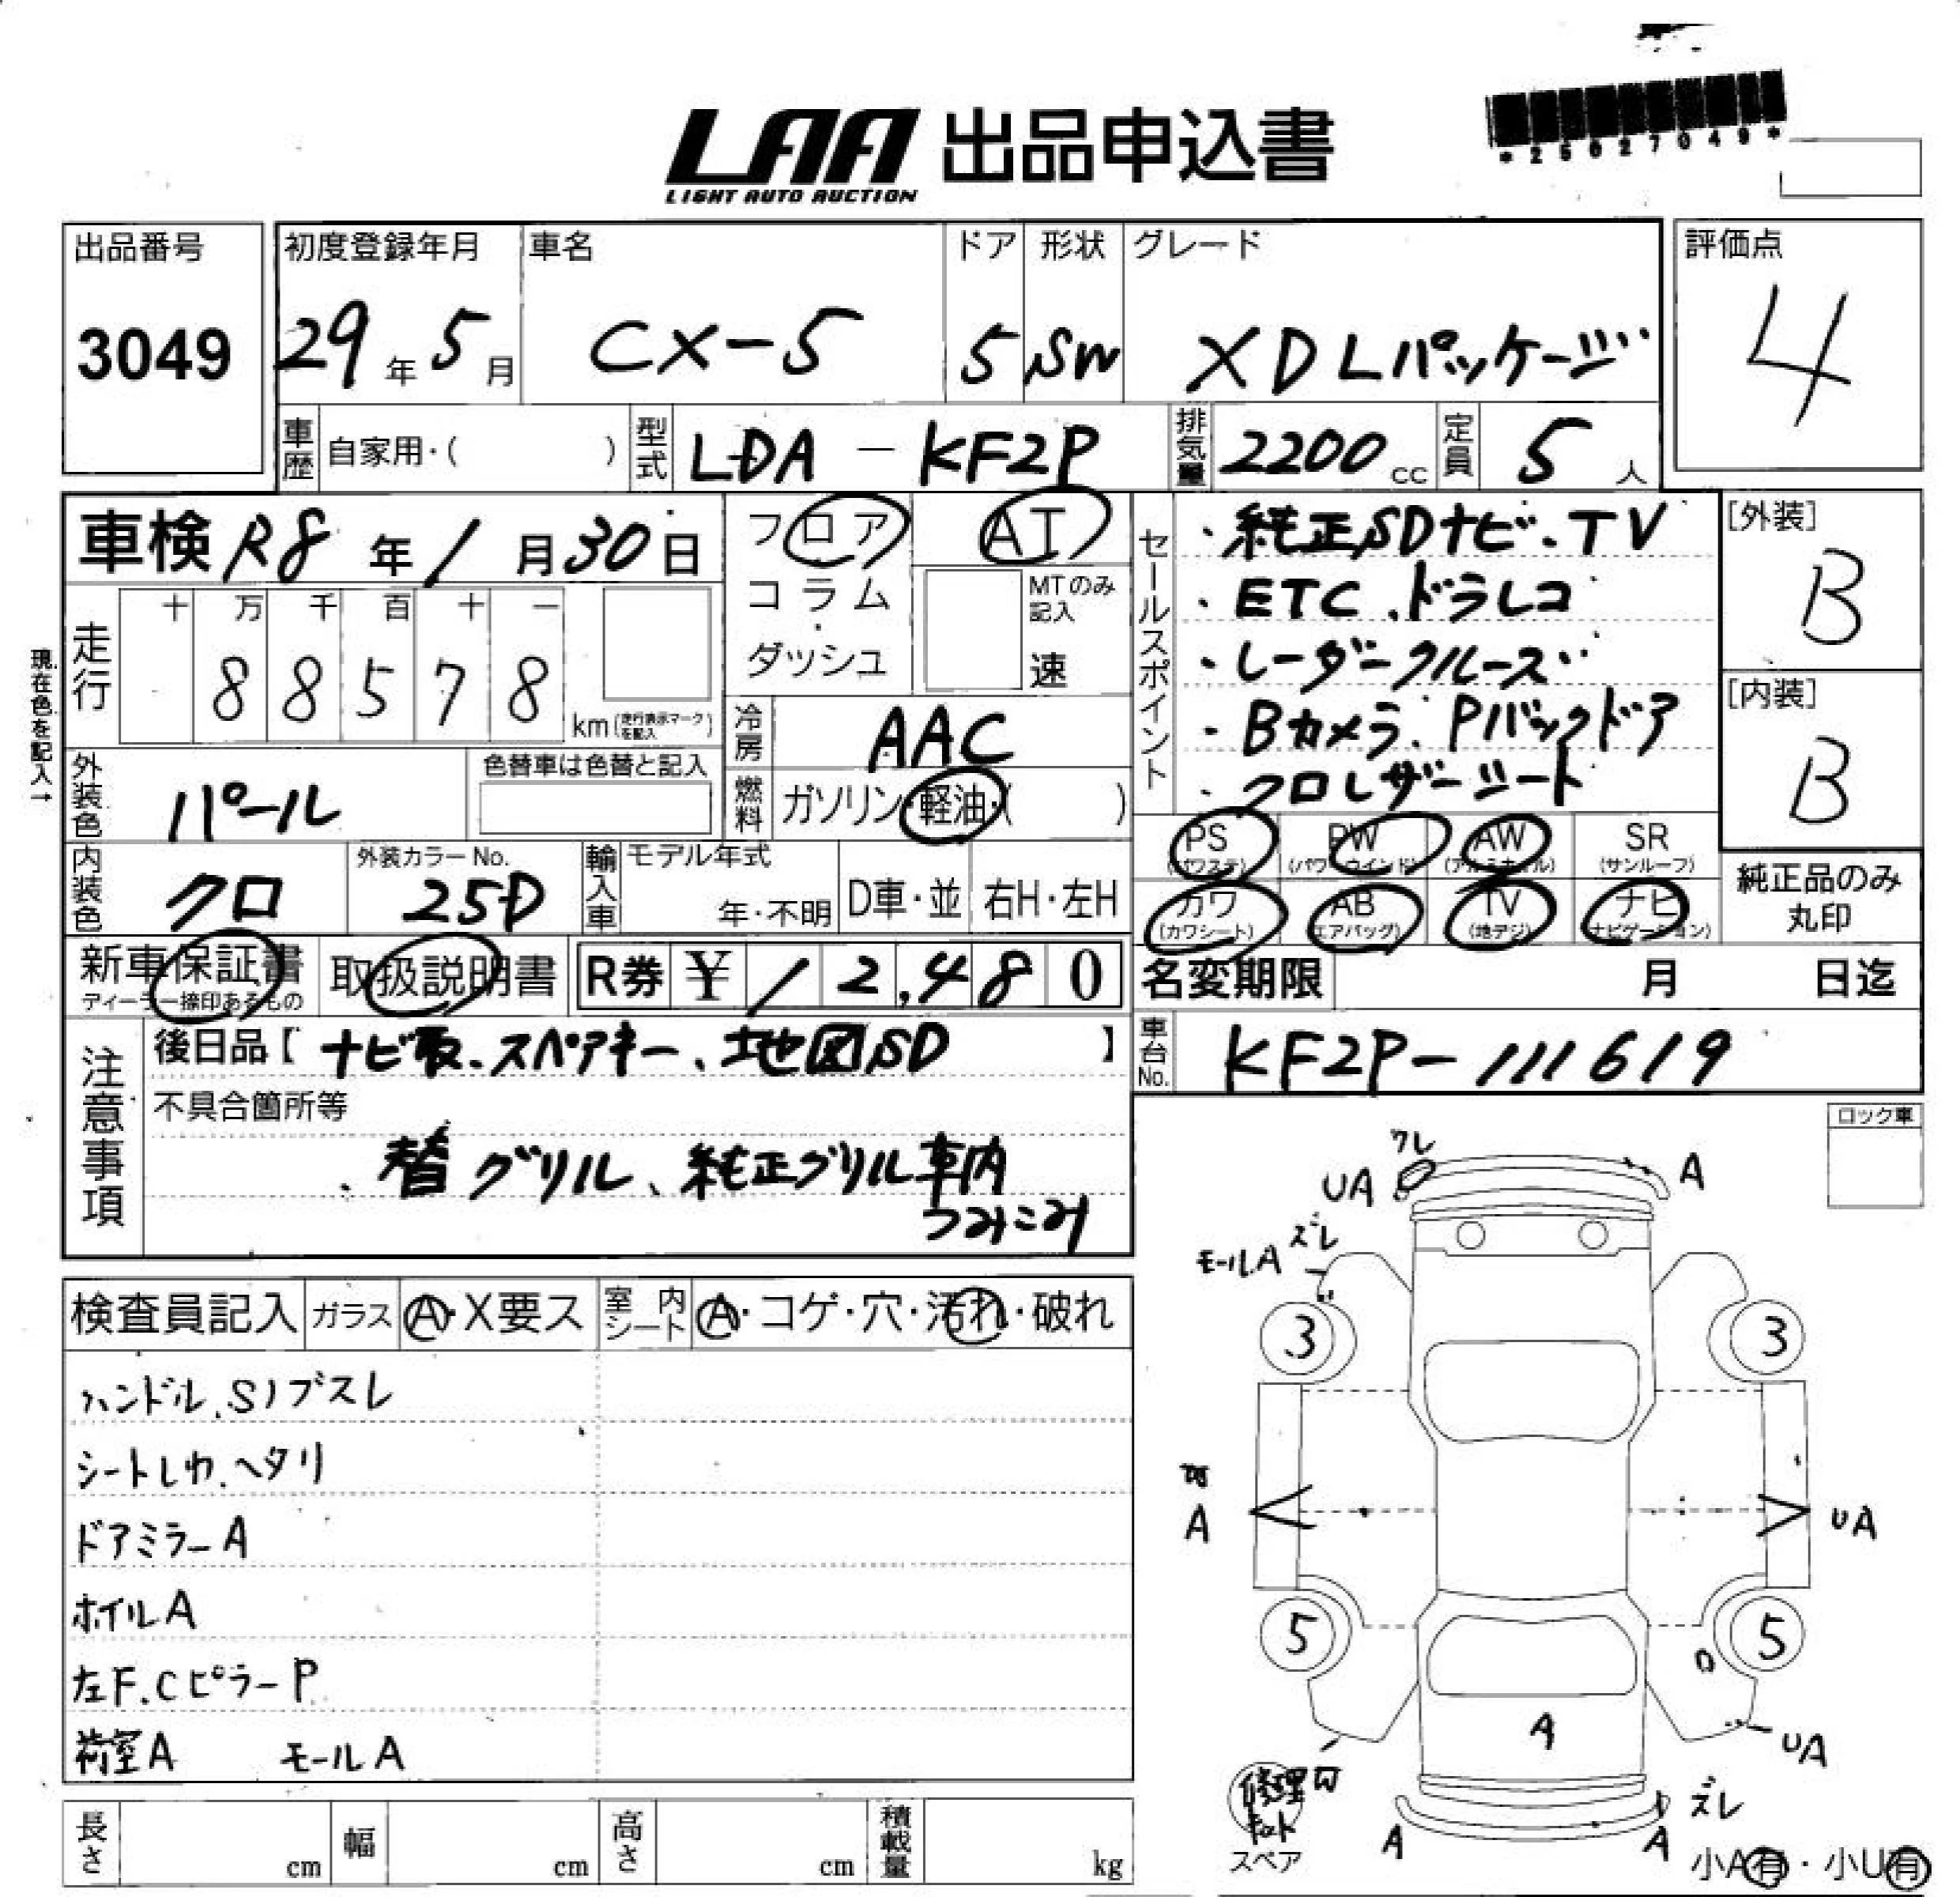 LAA 出品申込書
LIGHT AUTO AUCTION
*25027049*
出品番号
3049
初度登録年月
29年5月
車名
CX-5
ドア
5
形状
SW
グレード
XD Lパッケージ
評価点
4
車歴 自家用・( )
型式 LDA - KF2P
排気量 2200 cc
定員 5 人
車検 R8年1月30日
フロア AT
コラム
ダッシュ
MTのみ記入
速
現在色を記入→
走行
十 万 千 百 十 一
88578 km(走行表示マークを記入)
冷房 AAC
燃料 ガソリン・軽油・( )
外装色 パール
色替車は色替と記入
内装色 クロ
外装カラーNo.
25D
輸入車 モデル年式
年・不明
D車・並
右H・左H
セールスポイント
・純正SDナビ、TV
・ETC、ドラレコ
・レーダークルーズ
・Bカメラ、Pバックドア
・クロレザーシート
PS (パワステ)
PW (パワーウインド)
AW (アルミホイル)
SR (サンルーフ)
カワ (カワシート)
AB (エアバッグ)
TV (地デジ)
ナビ (ナビゲーション)
[外装]
B
[内装]
B
純正品のみ
丸印
新車保証書
ディーラー捺印あるもの
取扱説明書
R券 ¥12,480
名変期限 月 日迄
車台No. KF2P-111619
注意事項
後日品【ナビ取、スペアキー、地図SD】
不具合箇所等
・替グリル、純正グリル車内
つみこみ
検査員記入
ガラス A・X要ス
室内シート A・コゲ・穴・汚れ・破れ
ハンドル、S/ブスレ
シートシワ、ヘタリ
ドアミラーA
ホイルA
左F、CピラーP
荷室A モールA
長さ cm
幅 cm
高さ cm
積載量 kg
ロック車
ワレ
UA
A
ズレ
モールA
3
3
A
UA
5
5
A
UA
修理
キット
スペア
ズレ
A
A
小A有・小U有